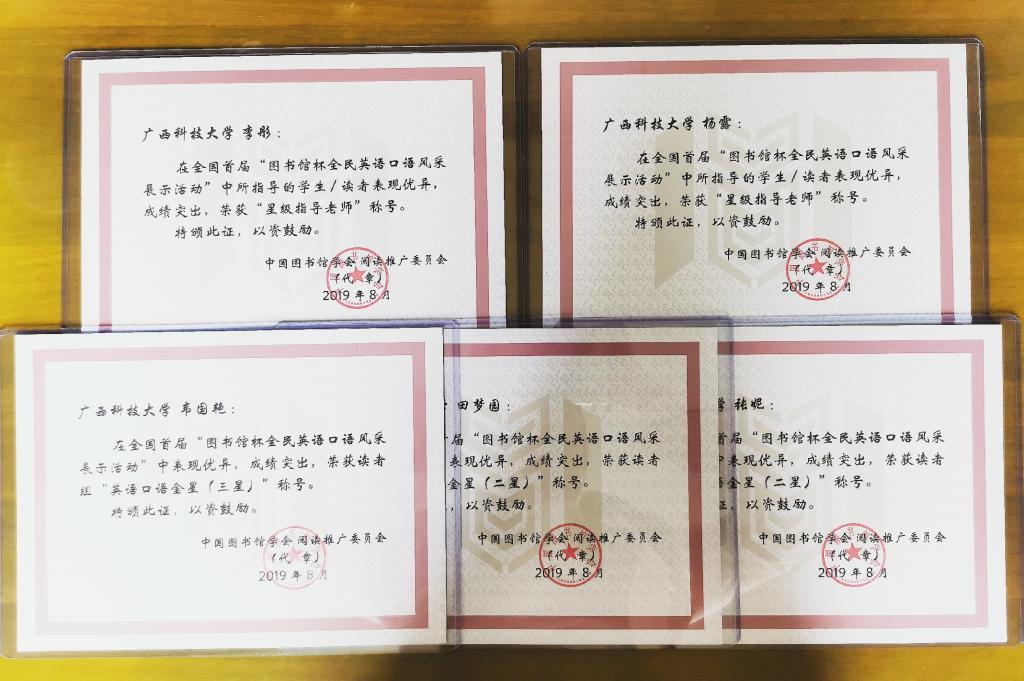 广西科技大学 李彤：
在全国首届“图书馆杯全民英语口语风采
展示活动”中所指导的学生/读者表现优异，
成绩突出，荣获“星级指导老师”称号。
特颁此证，以资鼓励。
中国图书馆学会 阅读推广委员会
（代 章）
2019 年 8 月
广西科技大学 杨露：
在全国首届“图书馆杯全民英语口语风采
展示活动”中所指导的学生/读者表现优异，
成绩突出，荣获“星级指导老师”称号。
特颁此证，以资鼓励。
中国图书馆学会 阅读推广委员会
（代 章）
2019 年 8 月
广西科技大学 韦国艳：
在全国首届“图书馆杯全民英语口语风采
展示活动”中表现优异，成绩突出，荣获读者
组“英语口语金星（三星）”称号。
特颁此证，以资鼓励。
中国图书馆学会 阅读推广委员会
（代 章）
2019 年 8 月
田梦园：
届“图书馆杯全民英语口语风采
表现优异，成绩突出，荣获读者
金星（二星）”称号。
，以资鼓励。
中国图书馆学会 阅读推广委员会
（代 章）
2019 年 8 月
学 张妮：
首届“图书馆杯全民英语口语风采
中表现优异，成绩突出，荣获读者
金星（二星）”称号。
证，以资鼓励。
中国图书馆学会 阅读推广委员会
（代 章）
2019 年 8 月